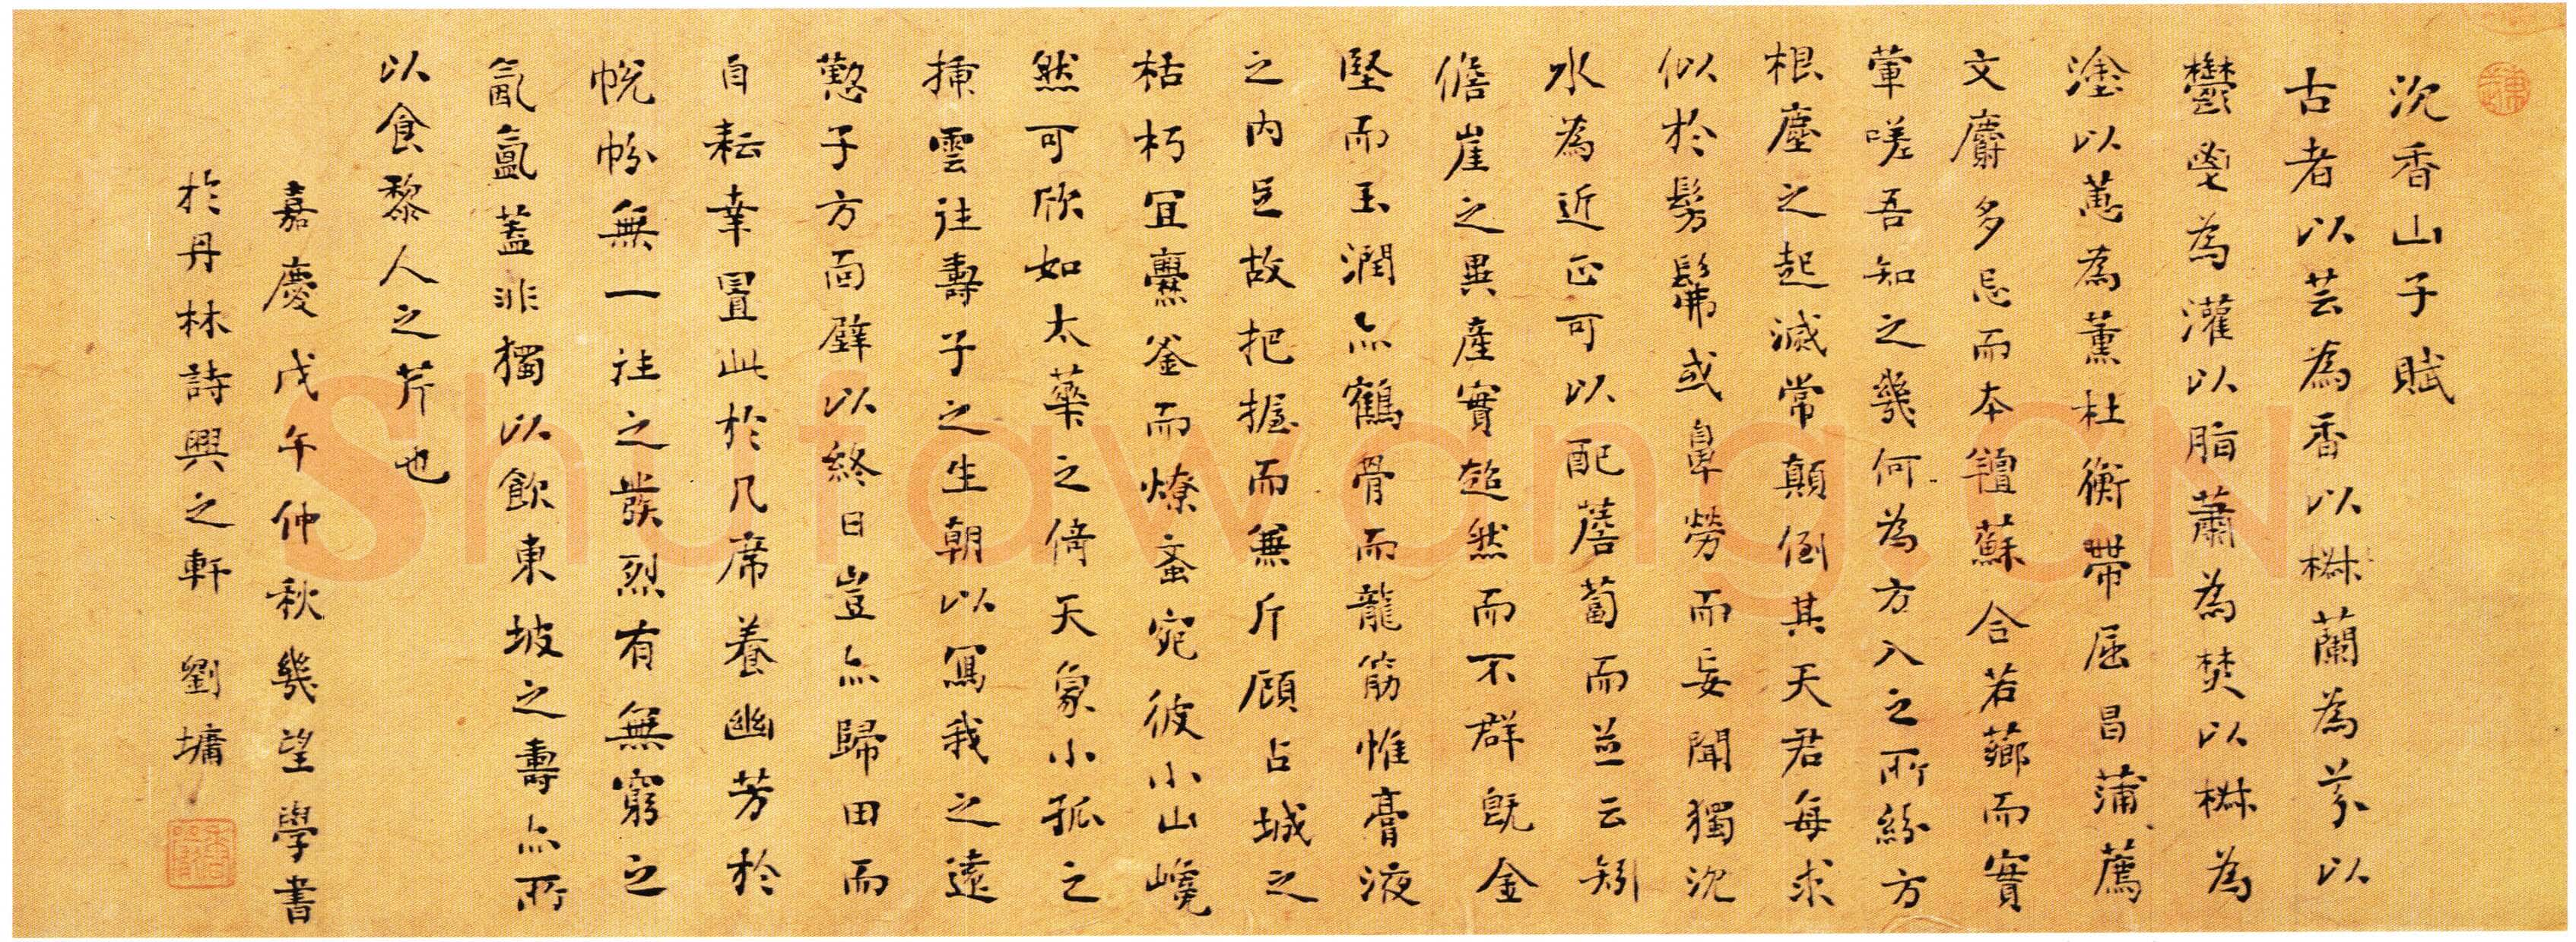 沉香山子賦
古者以芸為香以椒蘭為芬以
鬱鬯為灌以脂蕭為焚以椒為
塗以蕙為薰杜衡帶屈昌蒲薦
文麝多忌而本羶蘇合若薌而實
葷嗟吾知之幾何為六入之所分方
根塵之起滅常顛倒其天君每求
似於髣髴或鼻勞而妄聞獨沉
水為近正可以配薝蔔而並云矧
儋崖之異產實超然而不群既金
堅而玉潤亦鶴骨而龍筋惟膏液
之內足故把握而兼斤顧占城之
枯朽宜爨釜而燎蚉宛彼小山巉
然可欣如太華之倚天象小孤之
插雲往壽子之生朝以寫我之遠
懃子方面壁以終日豈亦歸田而
自耘幸置此於几席養幽芳於
帨帉無一往之發烈有無窮之
氤氳蓋非獨以飲東坡之壽亦所
以食黎人之芹也
嘉慶戊午仲秋幾望學書
於丹林詩興之軒 劉墉
Shufawang.CN